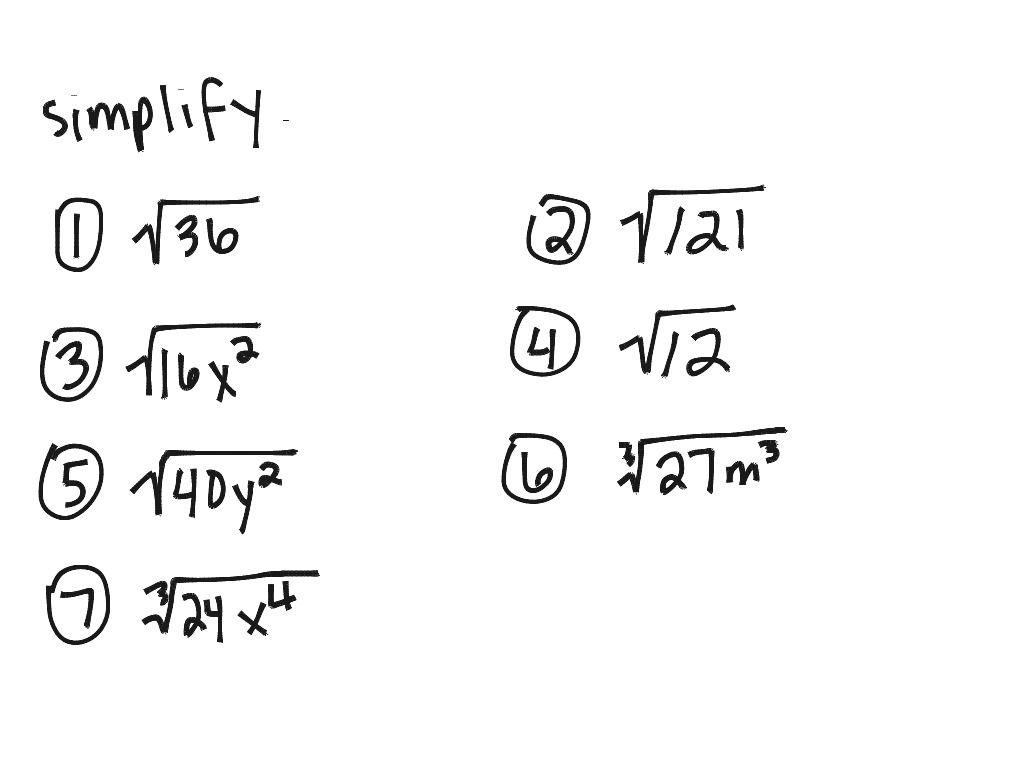 simplify
① √36 ② √121
③ √16x² ④ √12
⑤ √40y² ⑥ ∛27m³
⑦ ∛24x⁴